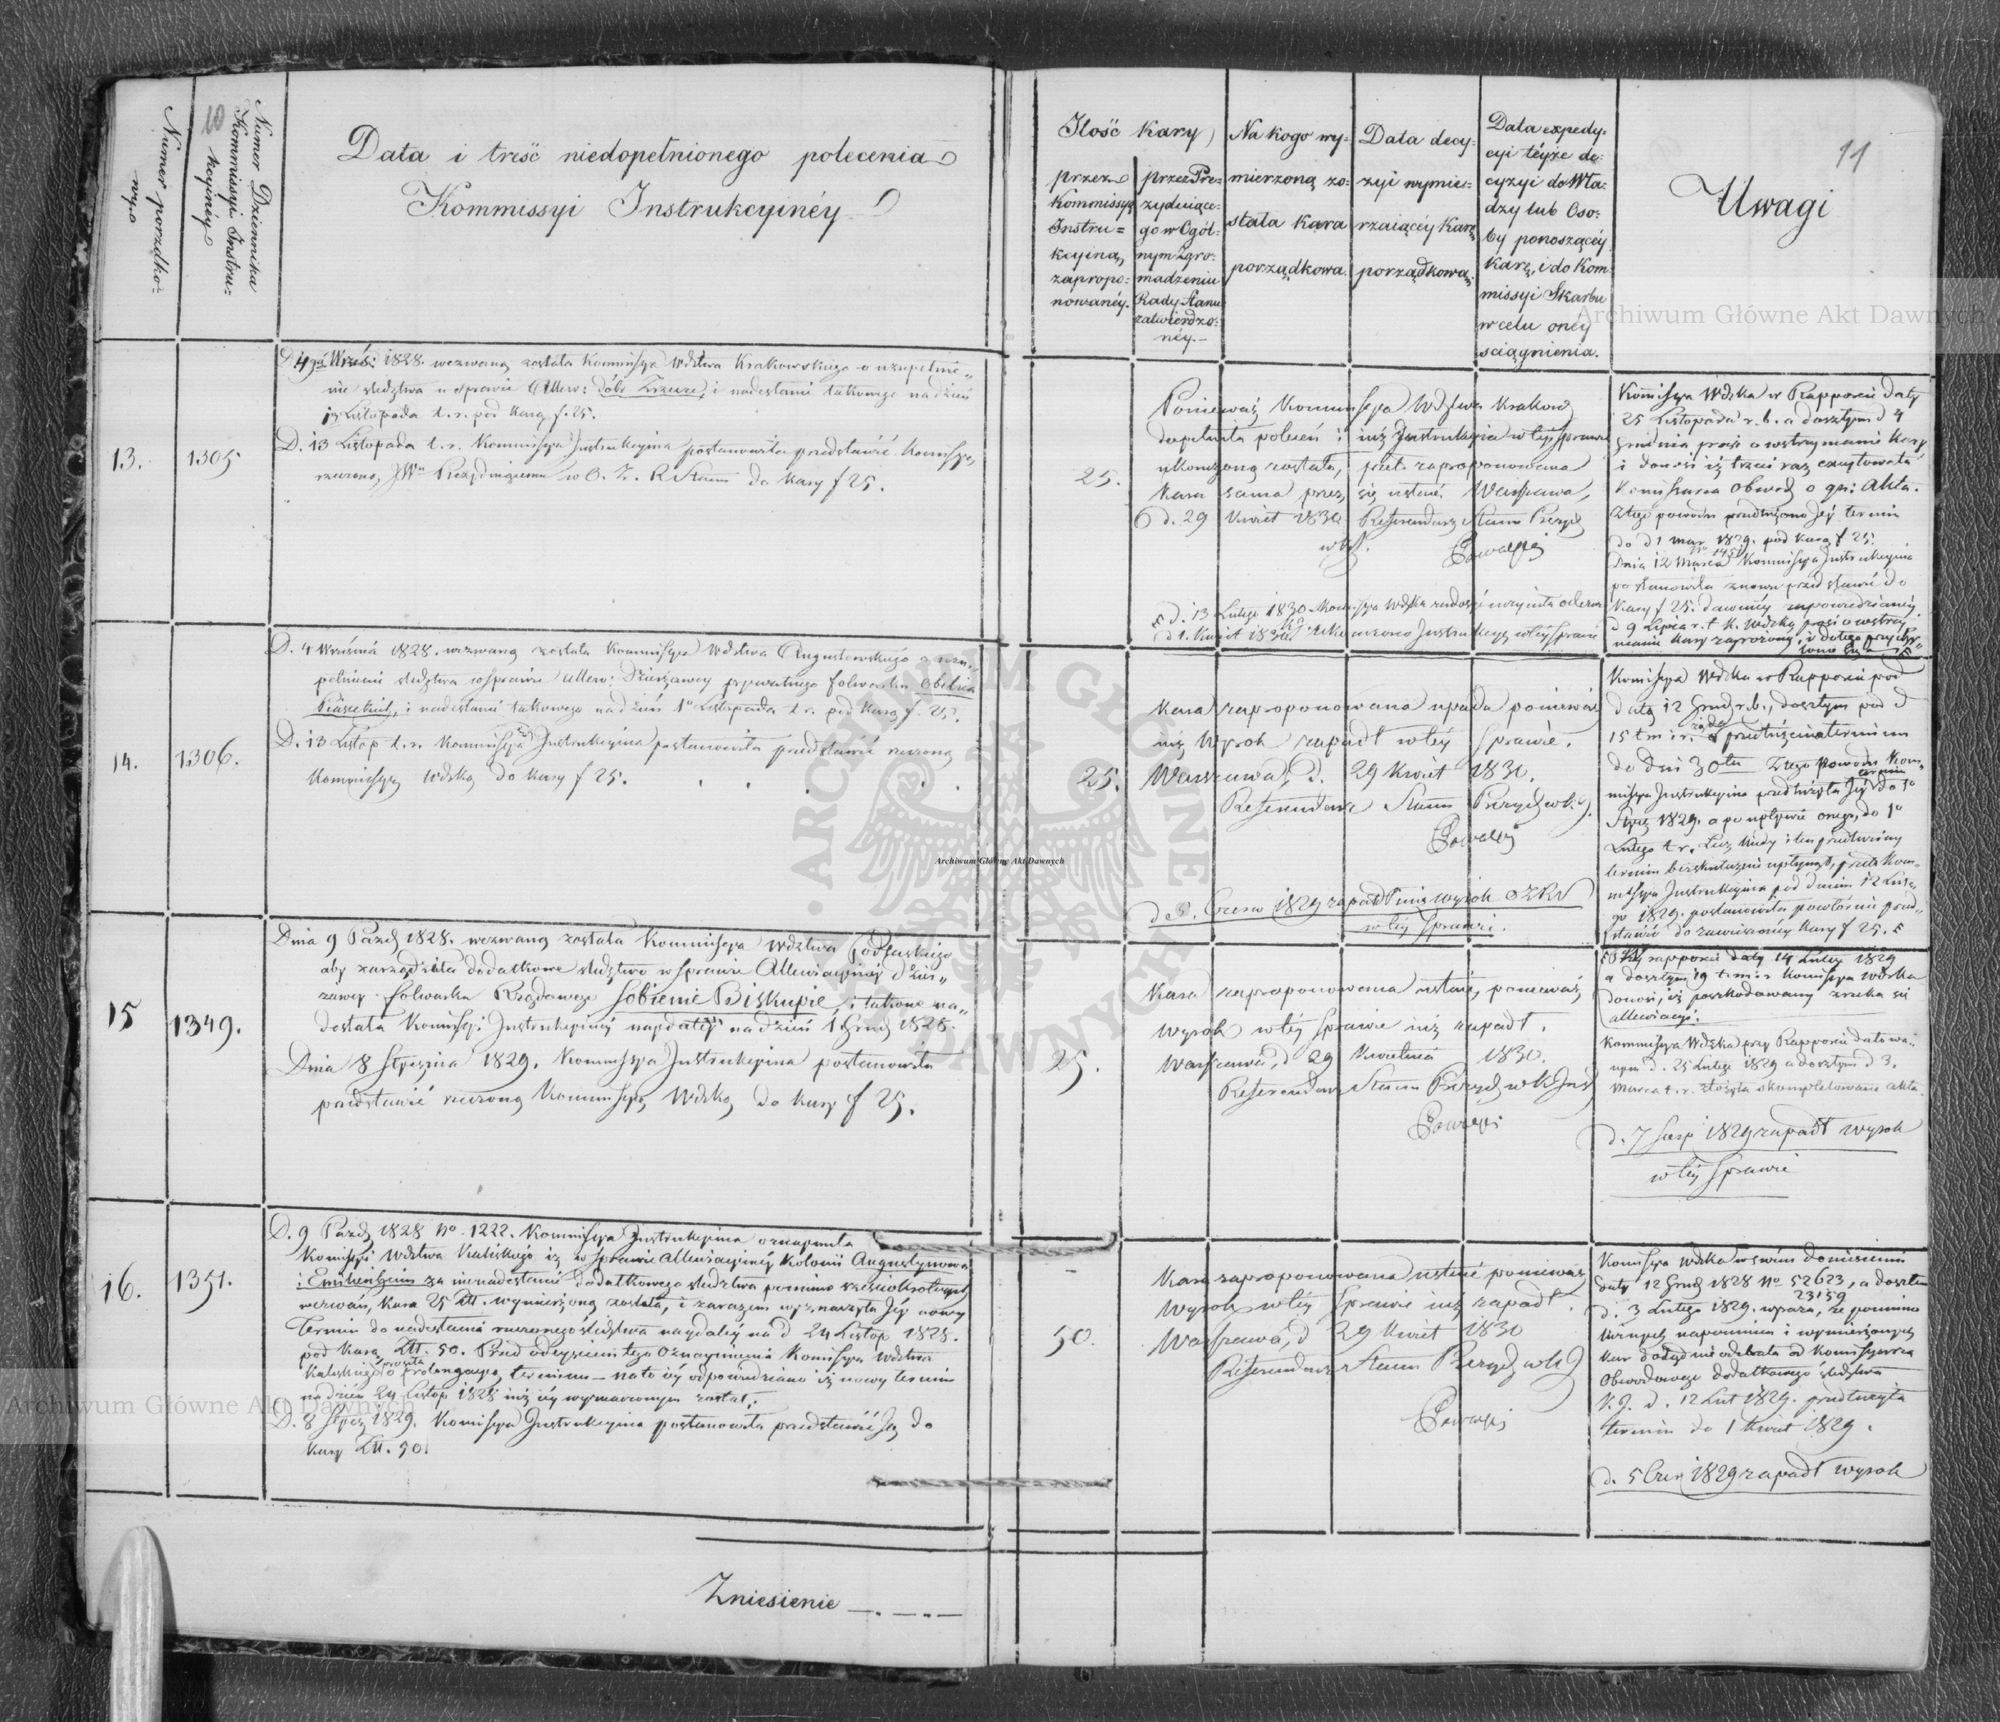 10
11
Numer porządko-
wy
Numer Dziennika
Kommissyi Instru-
kcyjnéy
Data i treść niedopełnionego polecenia
Kommissyi Instrukcyinéy
Ilość kary
przez
Kommissyą
Instru=
kcyiną
zapropo-
nowanéy.
przez Pre-
zyduiące-
go w Ogól-
nym Zgro-
madzeniu
Rady Stanu
zatwierdzo-
néy.
Na kogo wy-
mierzoną zo-
stała kara
porządkowa.
Data decy-
zyi wymie-
rzaiącéy Karę
porządkową.
Data expedy-
cyi téyże de-
cyzyi do Wła-
dzy lub Oso-
by ponoszącéy
karę, i do Kom
missyi Skarbu
w celu onéy
sciągnienia.
Uwagi
13.
1305
1828. wezwaną została Kommissya Wdztwa Krakowskiego o uzupełnie-
nie śledztwa w sprawie i nadesłanie takowego na dzień
Listopada t. r. pod karą f. 25.
D. 13 Listopada t. r. Kommissya Instrukcyina postanowiła przedstawić Komissyą
rzeczoną, w O. Z. R Stanu do kary f 25.
25.
Ponieważ Kommissya Wdztwa Krakow
dopełniła poleceń i iuż Instrukcyia w téy sprawie
ukończoną została, przeto zaproponowana
kara sama przez się ustaie. Warszawa,
d. 29 Kwiet 1830 Referendarz Stanu
Komissya Wdzka w Rapporcie daty
25 Listopada r. b. a doszłym d 4
Grudnia prosi o wstrzymanie kary
i donosi iż trzeci raz
Kommissarza Obwod o Akta.
Z tego powodu przedłużono Jéy termin
do d 1 1829. pod karą f 25.
Dnia 12 Marca Kommissya Instrukcyina
postanowiła znowu przedstawić do
Kary f 25. dawniéy zapowiedzianéy
d 9 Lipca r. t K. Wdzka prosi o wstrzy
manie kary zagrożonéy,
d. 13 Lutego 1830 Komissya Wdzka
d 1. Kwiet 1830 Instrukcyą w téy sprawie
14.
1306.
D. 4 Września 1828. wezwaną została Kommissya Wdztwa Augustowskiego o uzu-
pełnienie śledztwa w sprawie Allew: Dzierżawcy prywatnego folwarku
i nadesłanie takowego na dzień 1º Listopada t. r. pod karą f. 25.
D. 13 Listop t. r. Kommissya Instrukcyina postanowiła przedstawić rzeczoną
Kommissyą Wdzką do kary f 25.
25.
Kara zaproponowana upada ponieważ
iuż Wyrok zapadł w téy sprawie.
Warszawa, d. 29 Kwiet 1830.
Referendarz Stanu
Czerw 1829 zapadł iuż wyrok OZRS
w téy Sprawie.
Komissya Wdzka w Rapporcie pod
datą 12 Grud r. b., doszłym pod d
15 t m i r. żąda przedłużenia terminu
do dni 30tu Z tego powodu Kom-
missya Instrukcyina przedłużyła Jéy do 1º
Stycz 1829. a po upływie onego, do 1º
Lutego t r. Lecz kiedy i ten przedłużony
termin bezskutecznie upłynął, przeto Kom-
missya Instrukcyina pod dniem 12 Lute-
go 1829. postanowiła powtórnie przed-
stawić do zawieszonéy Kary f 25.
15
1349.
Dnia 9 Paźd 1828. wezwaną została Kommissya Wdztwa Podlaskiego
aby zarządziła dodatkowe śledztwo w sprawie Allewiacyinéy Dzier-
żawcy folwarku Rządowego Sobienie Biskupie i takowe na-
desłała Komissyi Instrukcyinéy naydaléy na dzień 1 Grud 1828.
Dnia 8 Stycznia 1829. Kommissya Instrukcyina postanowiła
przedstawić rzeczoną Kommissyą Wdzką do kary f 25.
25.
Kara zaproponowana ustaie, ponieważ,
wyrok w téy Sprawie iuż zapadł.
Warszawa, d 29 Kwietnia 1830.
Referendarz Stanu
rapporcie daty 14 Lutego 1829
a doszłym 19 t m i r Komissya Wdzka
donosi, iż poszkodowany zrzeka się
allewiacyi.
Kommissya Wdzka przy Rapporcie datowa-
nym d. 25 Lutego 1829 a doszłym d 3.
Marca t. r. złożyła skompletowane akta.
d. 7 Sierp 1829 zapadł wyrok
w téy Sprawie
16.
1351.
D. 9 Paźd 1828 Nº 1222. Kommissya Instrukcyina oznaymiła
Komissyi Wdztwa Kaliskiego iż w sprawie Allewiacyinéy Kolonii Augustynowa
i Emilienheim za nienadesłanie dodatkowego śledztwa pomimo sześciokrotnych
wezwań, kara 25 Złł. wymierzoną została, i zarazem wyznaczyła Jéy nowy
Termin do nadesłania rzeczonego śledztwa naydaléy na d 24 Listop 1828.
pod karą Złł. 50. Przed odeyściem tego Oznaymienia Komissya Wdztwa
Kaliskiego prosiła o prolongacyą terminu — na to iéy odpowiedziano iż nowy termin
na dzień 24 Listop 1828 iuż iéy wyznaczonym został.
D. 8 Stycz 1829. Komissya Instrukcyina postanowiła przedstawić Ją do
kary Złł. 50.
50.
Kara zaproponowana ustaie ponieważ
Wyrok w téy Sprawie iuż zapadł.
Warszawa, d 29 Kwiet 1830
Referendarz Stanu
Komissya Wdzka w swém doniesieniu
daty 12 Grud 1828 Nº 52623, a doszłem
23159
d. 3 Lutego 1829. wyraża, że pomimo
licznych napomnień i wymierzonych
kar dotąd nie odebrała od Komissarza
Obwodowego dodatkowego śledztwa
K. I. d. 12 Lut 1829. przedłużyła
termin do 1 Kwiet 1829.
d. 5 Czer 1829 zapadł wyrok
Zniesienie
Archiwum Główne Akt Dawnych
Archiwum Główne Akt Dawnych
Archiwum Główne Akt Dawnych
ARCHIWUM GŁÓWNE AKT DAWNYCH